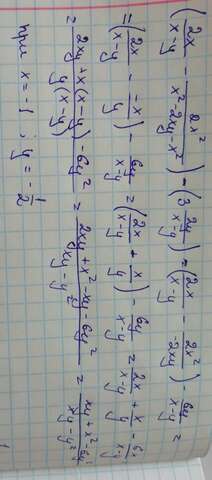 (2x/(x-y) - 2x²/(x²-2xy-x²)) - (3 · 2y/(x-y)) = (2x/(x-y) - 2x²/(-2xy)) - 6y/(x-y) =
= (2x/(x-y) - (-x)/y) - 6y/(x-y) = (2x/(x-y) + x/y) - 6y/(x-y) = 2x/(x-y) + x/y - 6y/(x-y)
= (2xy + x(x-y) - 6y²)/(y(x-y)) = (2xy + x² - xy - 6y²)/(xy - y²) = (xy + x² - 6y²)/(xy - y²)
при x = -1 ; y = -1/2